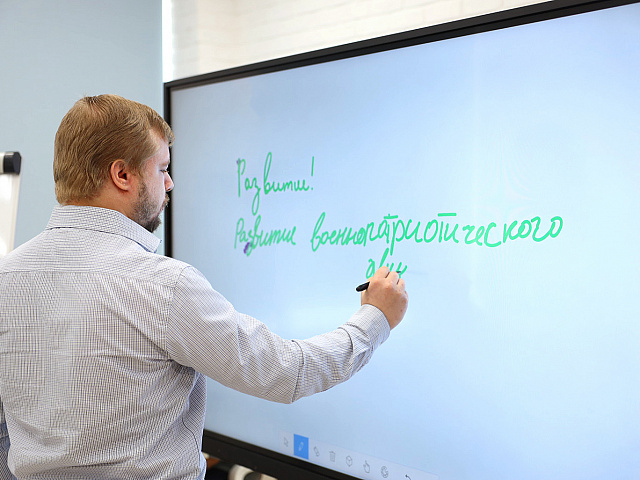 Развитие!
Развитие военнопатриотического
движ